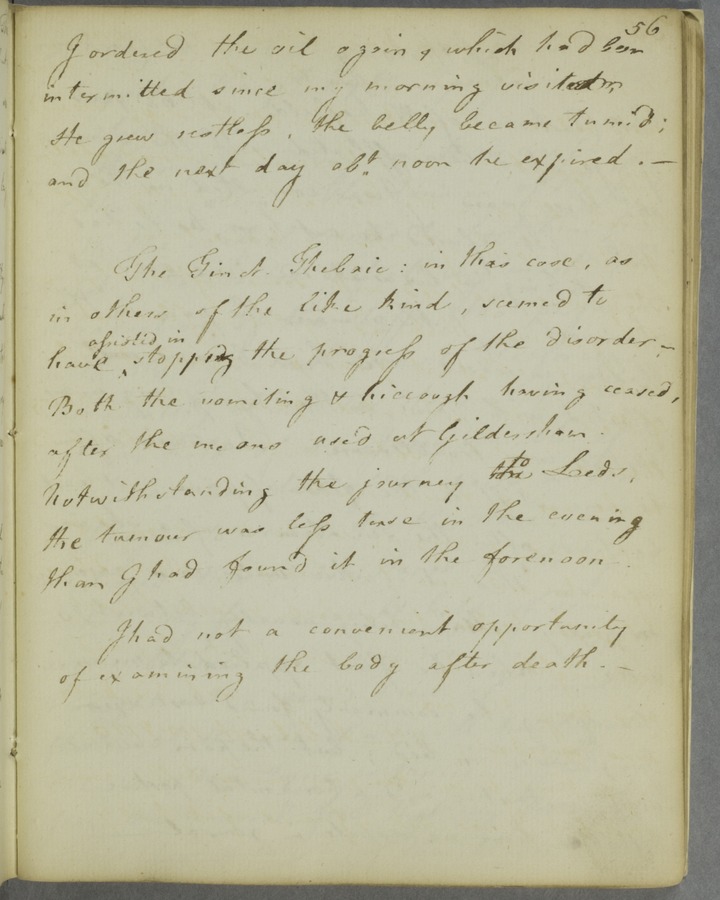 56
I ordered the oil again, which had been
intermitted since my morning visit.
He grew restless, the belly became tumid;
and the next day abt. noon he expired. —
The Tinct. Thebaic: in this case, as
in others of the like kind, seemed to
assisted in
have stopping the progress of the disorder —
Both the vomiting & hiccough having ceased,
after the means used at Gildersham.
Notwithstanding the journey to Leeds,
the tumour was less tense in the evening
than I had found it in the forenoon.
I had not a convenient opportunity
of examining the body after death. —